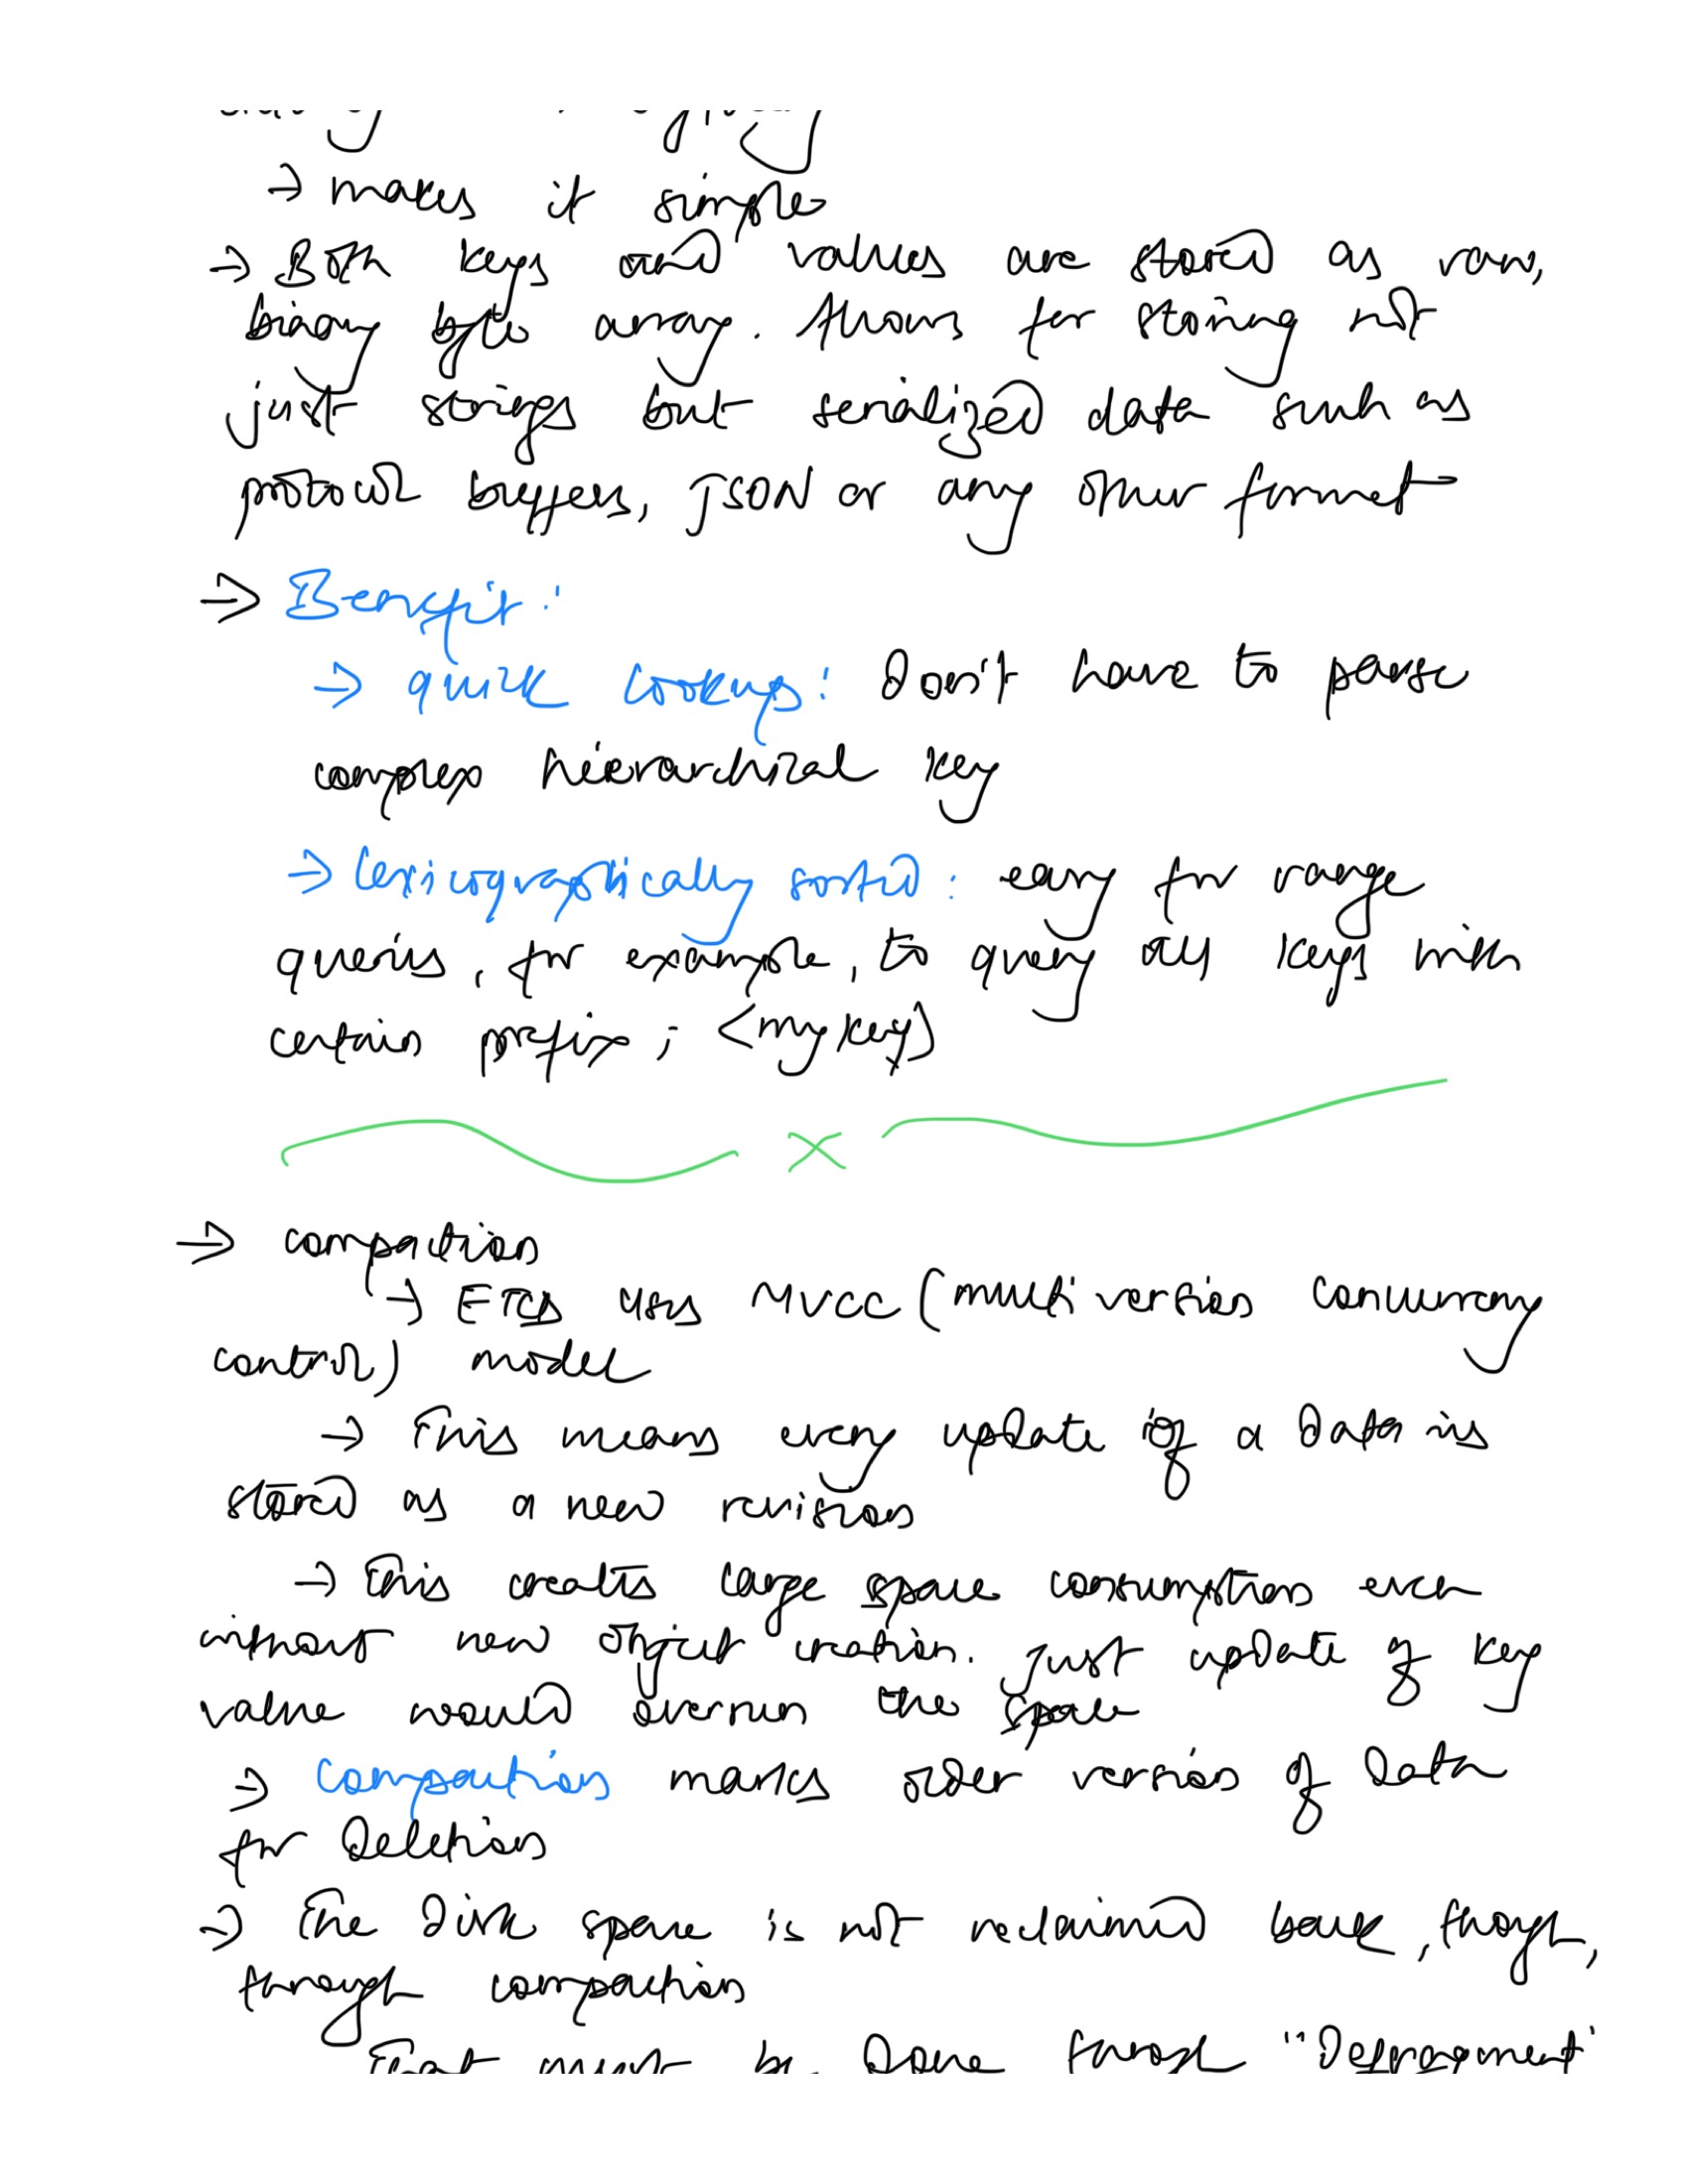 → makes it simple
→ Both keys and values are stored as raw,
binary byte array. Allows for storing not
just strings but serialized data such as
protocol buffers, JSON or any other format
⇒ Benefit:
→ quick lookups: Don't have to parse
complex hierarchical key
→ lexicographically sorted: easy for range
queries, for example, to query all keys with
certain prefix; <my key>
x
⇒ compaction
→ ETCD uses MVCC (multi version concurrency
control) model
→ This means every update of a data is
stored as a new revision
→ This creates large space consumption even
without new object creation. Just update of key
value would overrun the space
⇒ compaction marks older version of data
for Deletion
⇒ The Disk space is not reclaimed back, though,
through compaction
That must be Done through "Defragment"